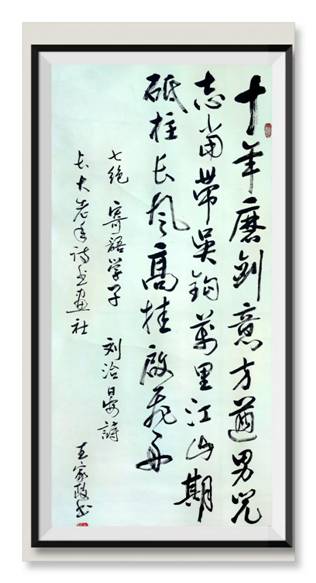 十年磨剑意方遒男儿
志当带吴钩萬里江山期
砥柱长风高挂启飞舟
七绝 寄语学子 刘治晏诗
长大老年诗书画社
王家政书